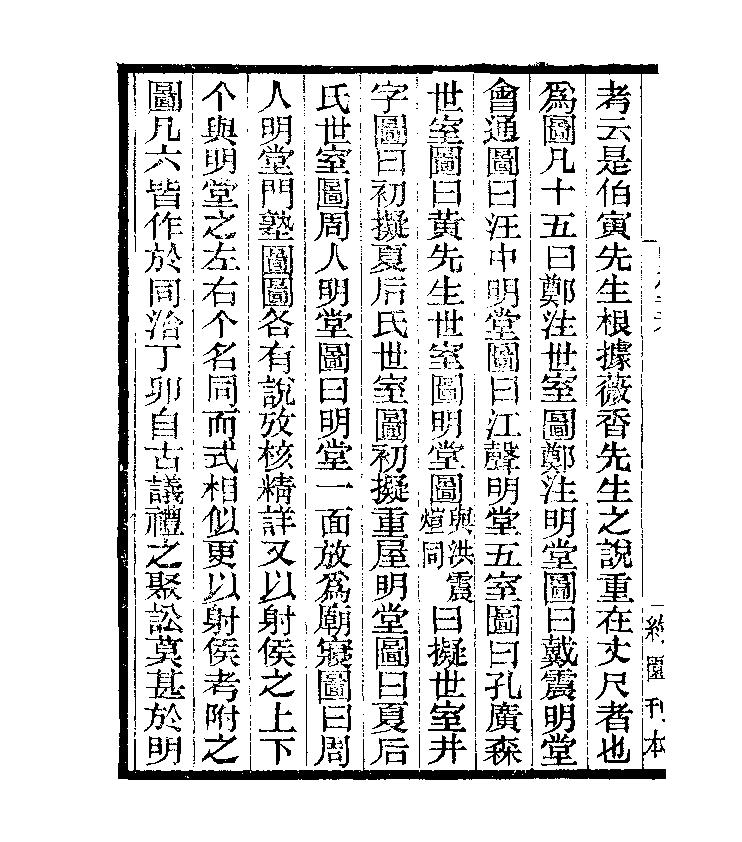 約園刊本
考云是伯寅先生根據薇香先生之說重在丈尺者也
爲圖凡十五曰鄭注世室圖鄭注明堂圖曰戴震明堂
會通圖曰汪中明堂圖曰江聲明堂五室圖曰孔廣森
世室圖曰黃先生世室圖明堂圖與洪震煊同曰擬世室井
字圖曰初擬夏后氏世室圖初擬重屋明堂圖曰夏后
氏世室圖周人明堂圖曰明堂一面放爲廟寢圖曰周
人明堂門塾圖圖各有說攷核精詳又以射侯之上下
个與明堂之左右个名同而式相似更以射侯考附之
圖凡六皆作於同治丁卯自古議禮之聚訟莫甚於明